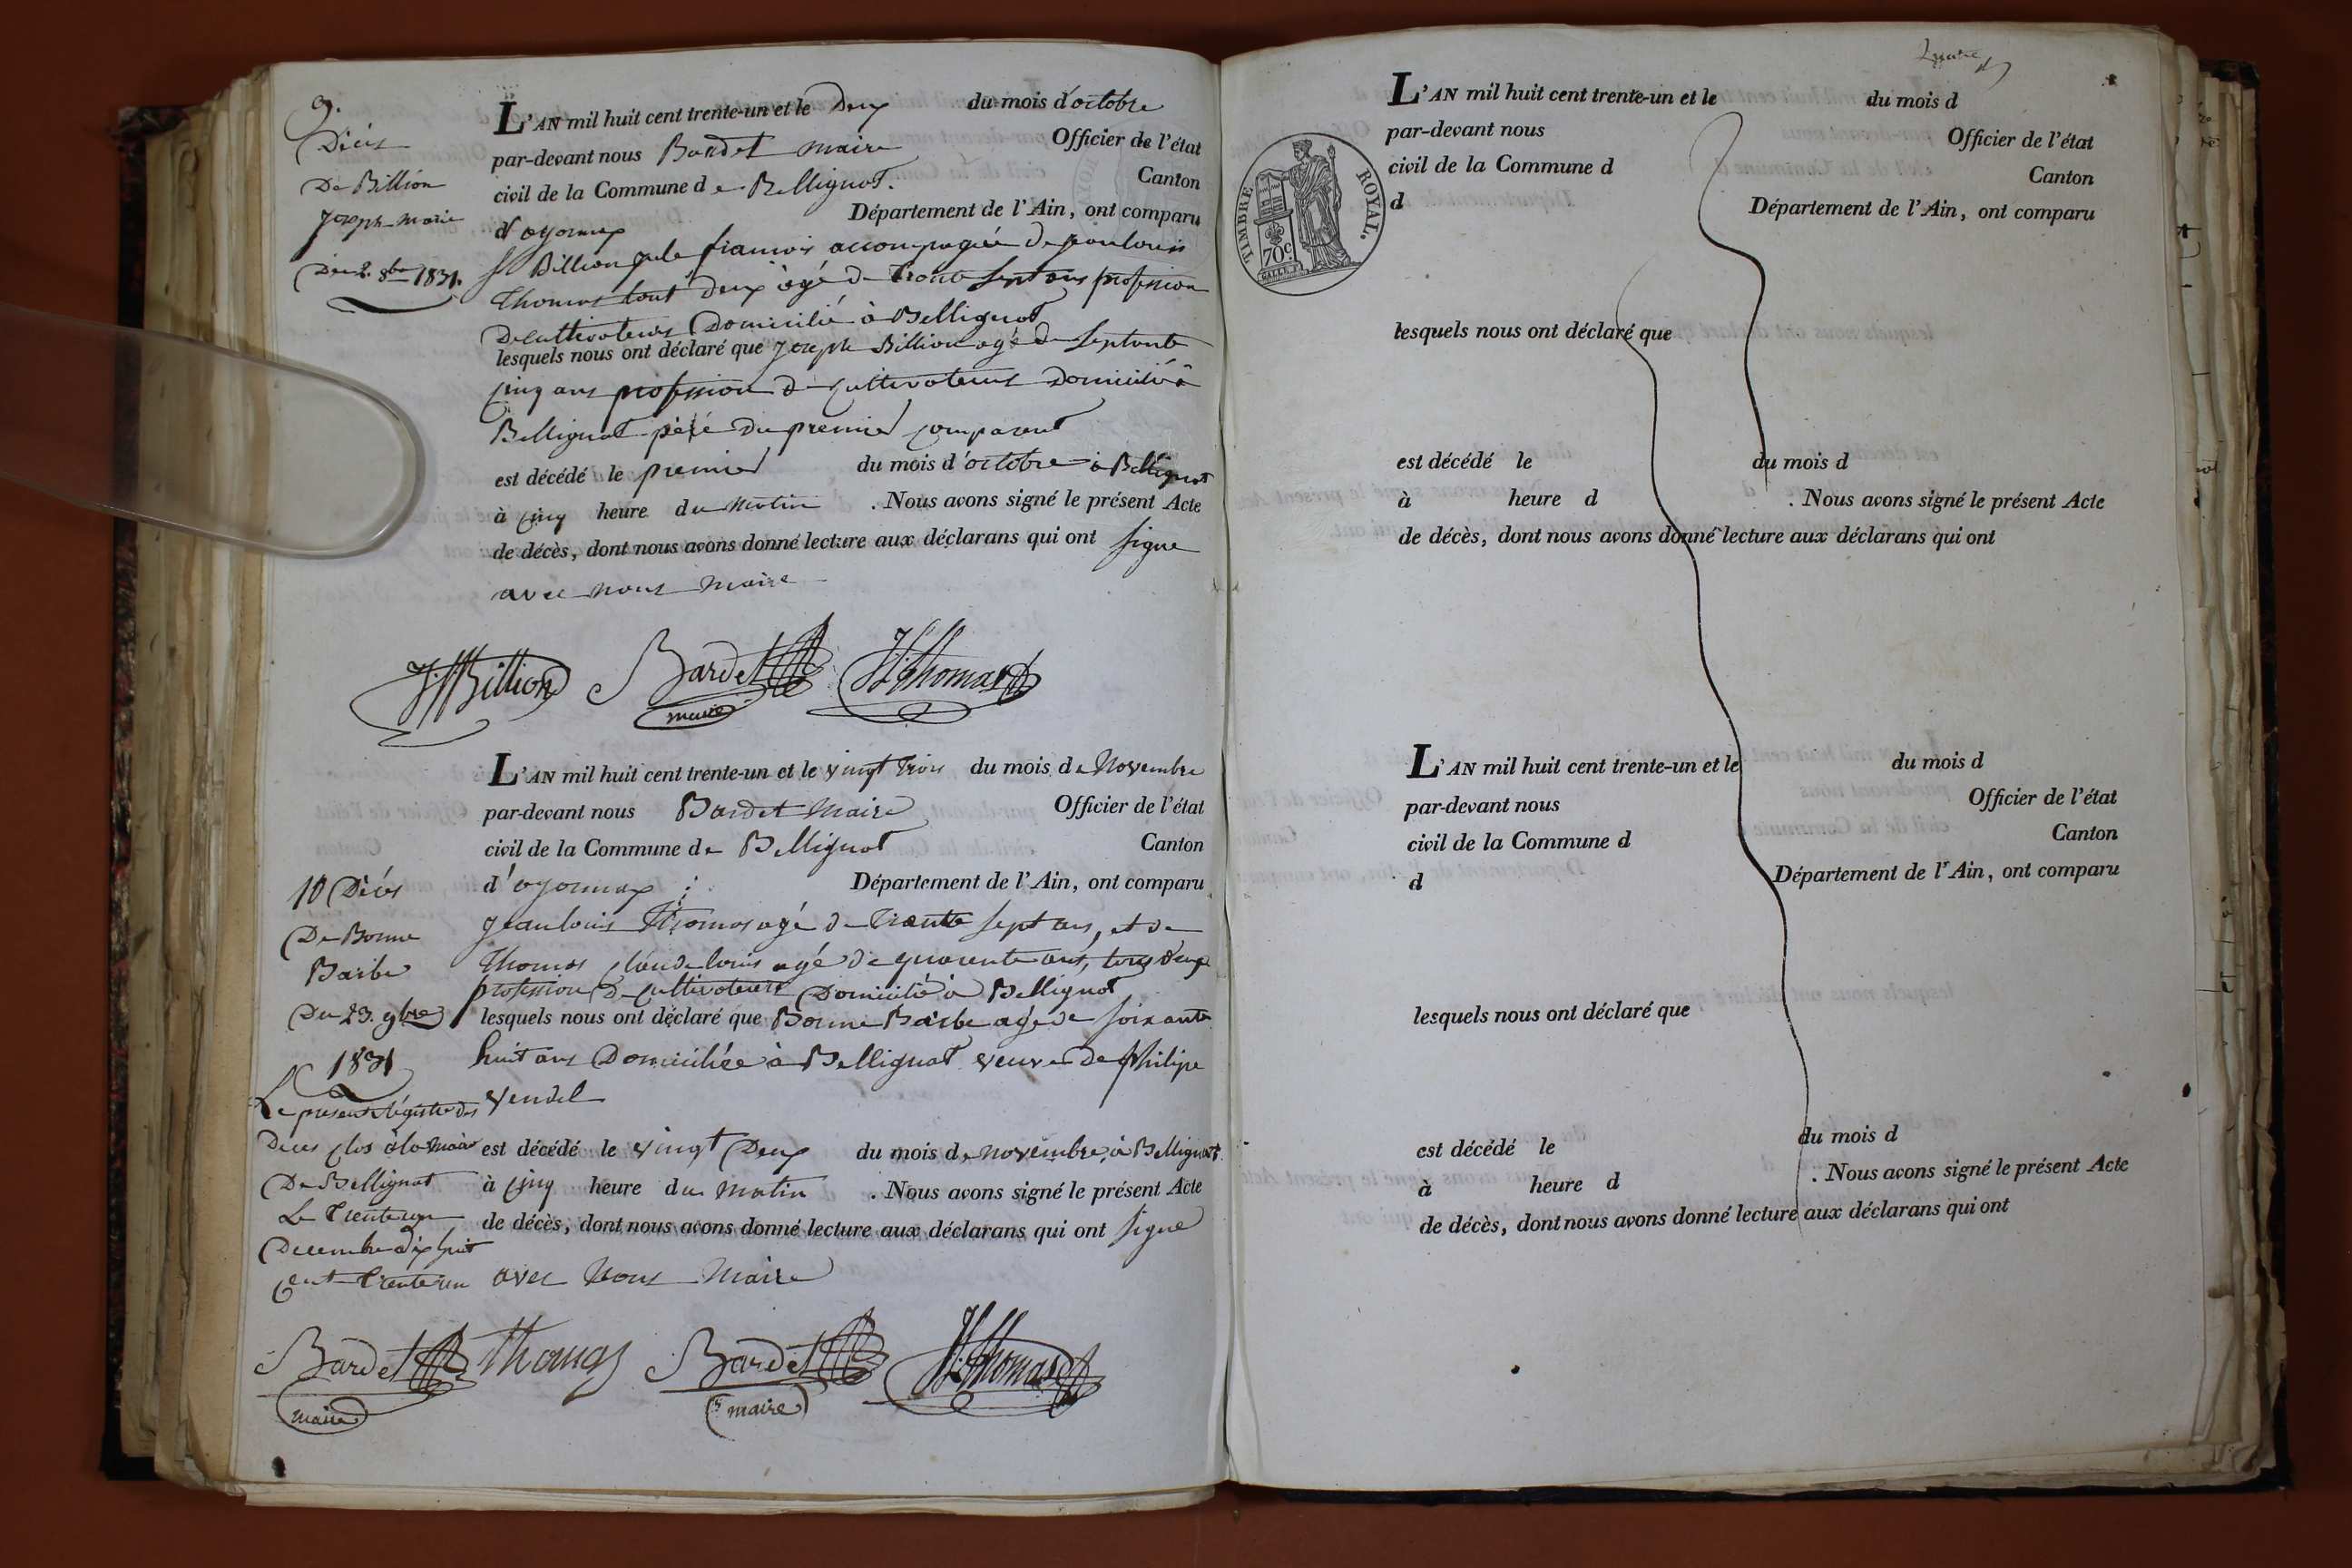 9.
Décès
De Billion
Joseph-Marie
Du 2. 8bre 1831.
L'AN mil huit cent trente-un et le Deux du mois d'octobre
par-devant nous Bardet maire Officier de l'état
civil de la Commune de Bellignat. Canton
d'oyonnax Département de l'Ain, ont comparu
Billion francois accompagné de jean louis
Thomas tout deux agé de trente sept ans profession
De cultivateurs Domicilié à Bellignat
lesquels nous ont déclaré que Joseph Billion agé de septante
cinq ans profession de cultivateurs Domicilié à
Bellignat père du premier comparant
est décédé le premier du mois d'octobre à Bellignat
à cinq heure du matin . Nous avons signé le présent Acte
de décès, dont nous avons donné lecture aux déclarans qui ont signe
avec nous maire
Billion Bardet J L Thomas
maire
L'AN mil huit cent trente-un et le vingt trois du mois de Novembre
par-devant nous Bardet Maire Officier de l'état
civil de la Commune de Bellignat Canton
d'oyonnax Département de l'Ain, ont comparu
jean louis Thomas agé de trante sept ans, et de
Thomas claude louis agé de quarente ans, tous deux
profession De cultivateurs Domicilié à Bellignat
lesquels nous ont déclaré que Bonne Barbe agé de soixante
huit ans Domiciliée à Bellignat veuve De philipe
vendel
est décédé le vingt Deux du mois de novembre, à Bellignat
à cinq heure du matin . Nous avons signé le présent Acte
de décès, dont nous avons donné lecture aux déclarans qui ont signe
avec Nous Maire
10 Décès
De Bonne
Barbe
Du 23. 9bre
1831
Le present régistre des
Deces clos à la mairie
De Bellignat
Le trente un
Decembre dix huit
cent trente un
Bardet Thomas Bardet J L Thomas
maire maire
L'AN mil huit cent trente-un et le du mois d
par-devant nous Officier de l'état
civil de la Commune d Canton
d Département de l'Ain, ont comparu
TIMBRE ROYAL.
70c.
lesquels nous ont déclaré que
est décédé le du mois d
à heure d . Nous avons signé le présent Acte
de décès, dont nous avons donné lecture aux déclarans qui ont
L'AN mil huit cent trente-un et le du mois d
par-devant nous Officier de l'état
civil de la Commune d Canton
d Département de l'Ain, ont comparu
lesquels nous ont déclaré que
est décédé le du mois d
à heure d . Nous avons signé le présent Acte
de décès, dont nous avons donné lecture aux déclarans qui ont